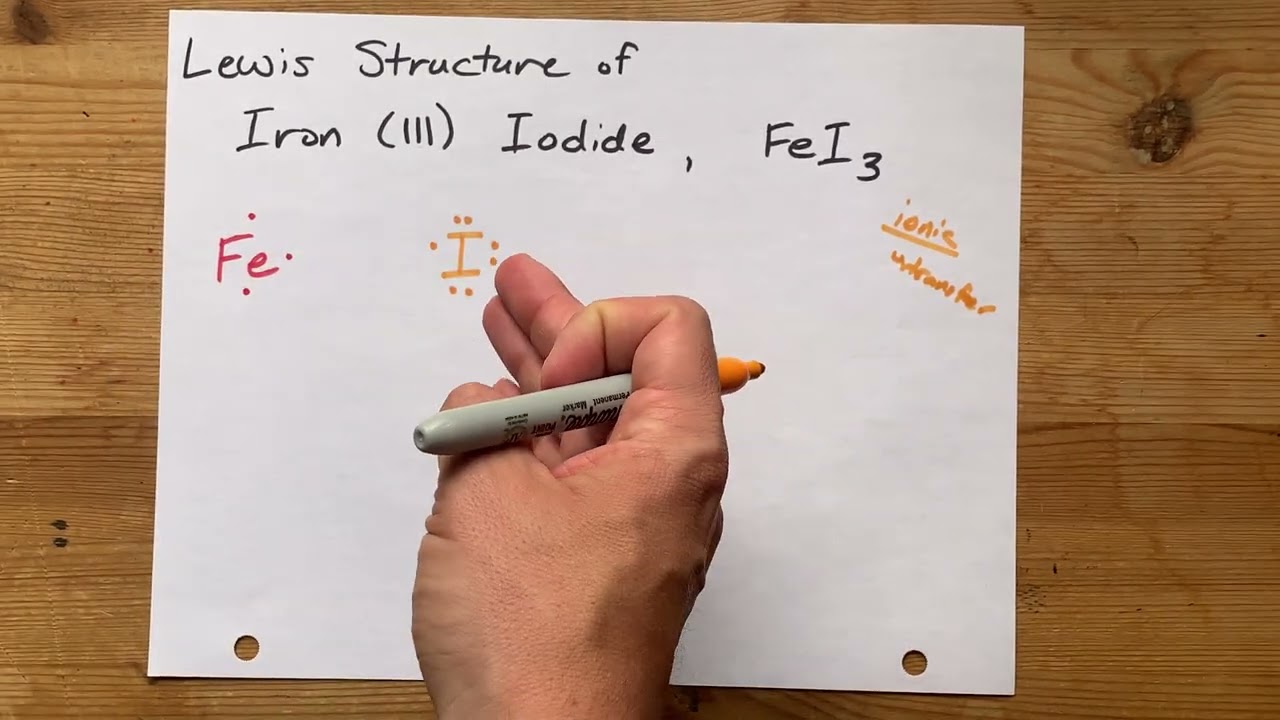 Lewis Structure of
Iron (III) Iodide, FeI3
ionic
Fe I
transfer
Permanent
Marker